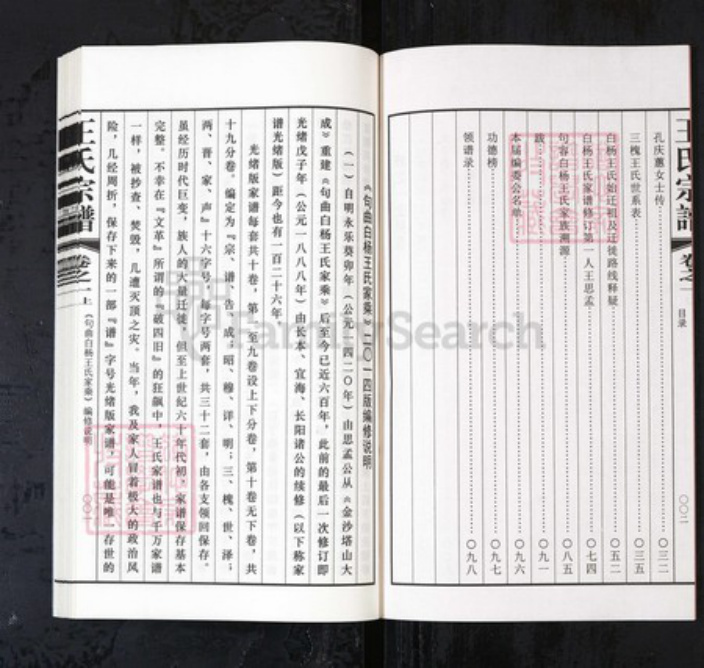 王氏宗谱
卷之一
目录
〇〇二
孔庆蕙女士传 〇三二
三槐王氏世系表 〇三五
白杨王氏始迁祖及迁徙路线释疑 〇五二
白杨王氏家谱修订第一人王思孟 〇七四
句容白杨王氏家族溯源 〇八五
跋 〇九一
本届编委会名单 〇九六
功德榜 〇九七
领谱录 〇九八
《句曲白杨王氏家乘》二〇一四版编修说明
(一)自明永乐癸卯年(公元一四二〇年)由思孟公从《金沙塔山大
成》重建《句曲白杨王氏家乘》后至今已近六百年,此前的最后一次修订即
光绪戊子年(公元一八八八年)由长本、宜海、长阳诸公的续修(以下称家
谱光绪版)距今也有一百二十六年。
光绪版家谱每套共十卷,第一至九卷设上下分卷,第十卷无下卷,共
十九分卷。编定为『宗、谱、告、成;昭、穆、详、明;三、槐、世、泽;
两、晋、家、声』十六字号,每字号两套,共三十二套,由各支领回保存。
虽经历时代巨变,族人的大量迁徙,但至上世纪六十年代初,家谱保存基本
完整。不幸在『文革』所谓的『破四旧』的狂飙中,王氏家谱也与千万家谱
一样,被抄查、焚毁,几遭灭顶之灾。当年,我及家人冒着极大的政治风
险,几经周折,保存下来的一部『谱』字号光绪版家谱,可能是唯一存世的
王氏宗谱
卷之一上
(句曲白杨王氏家乘)编修说明
〇〇一
FamilySearch